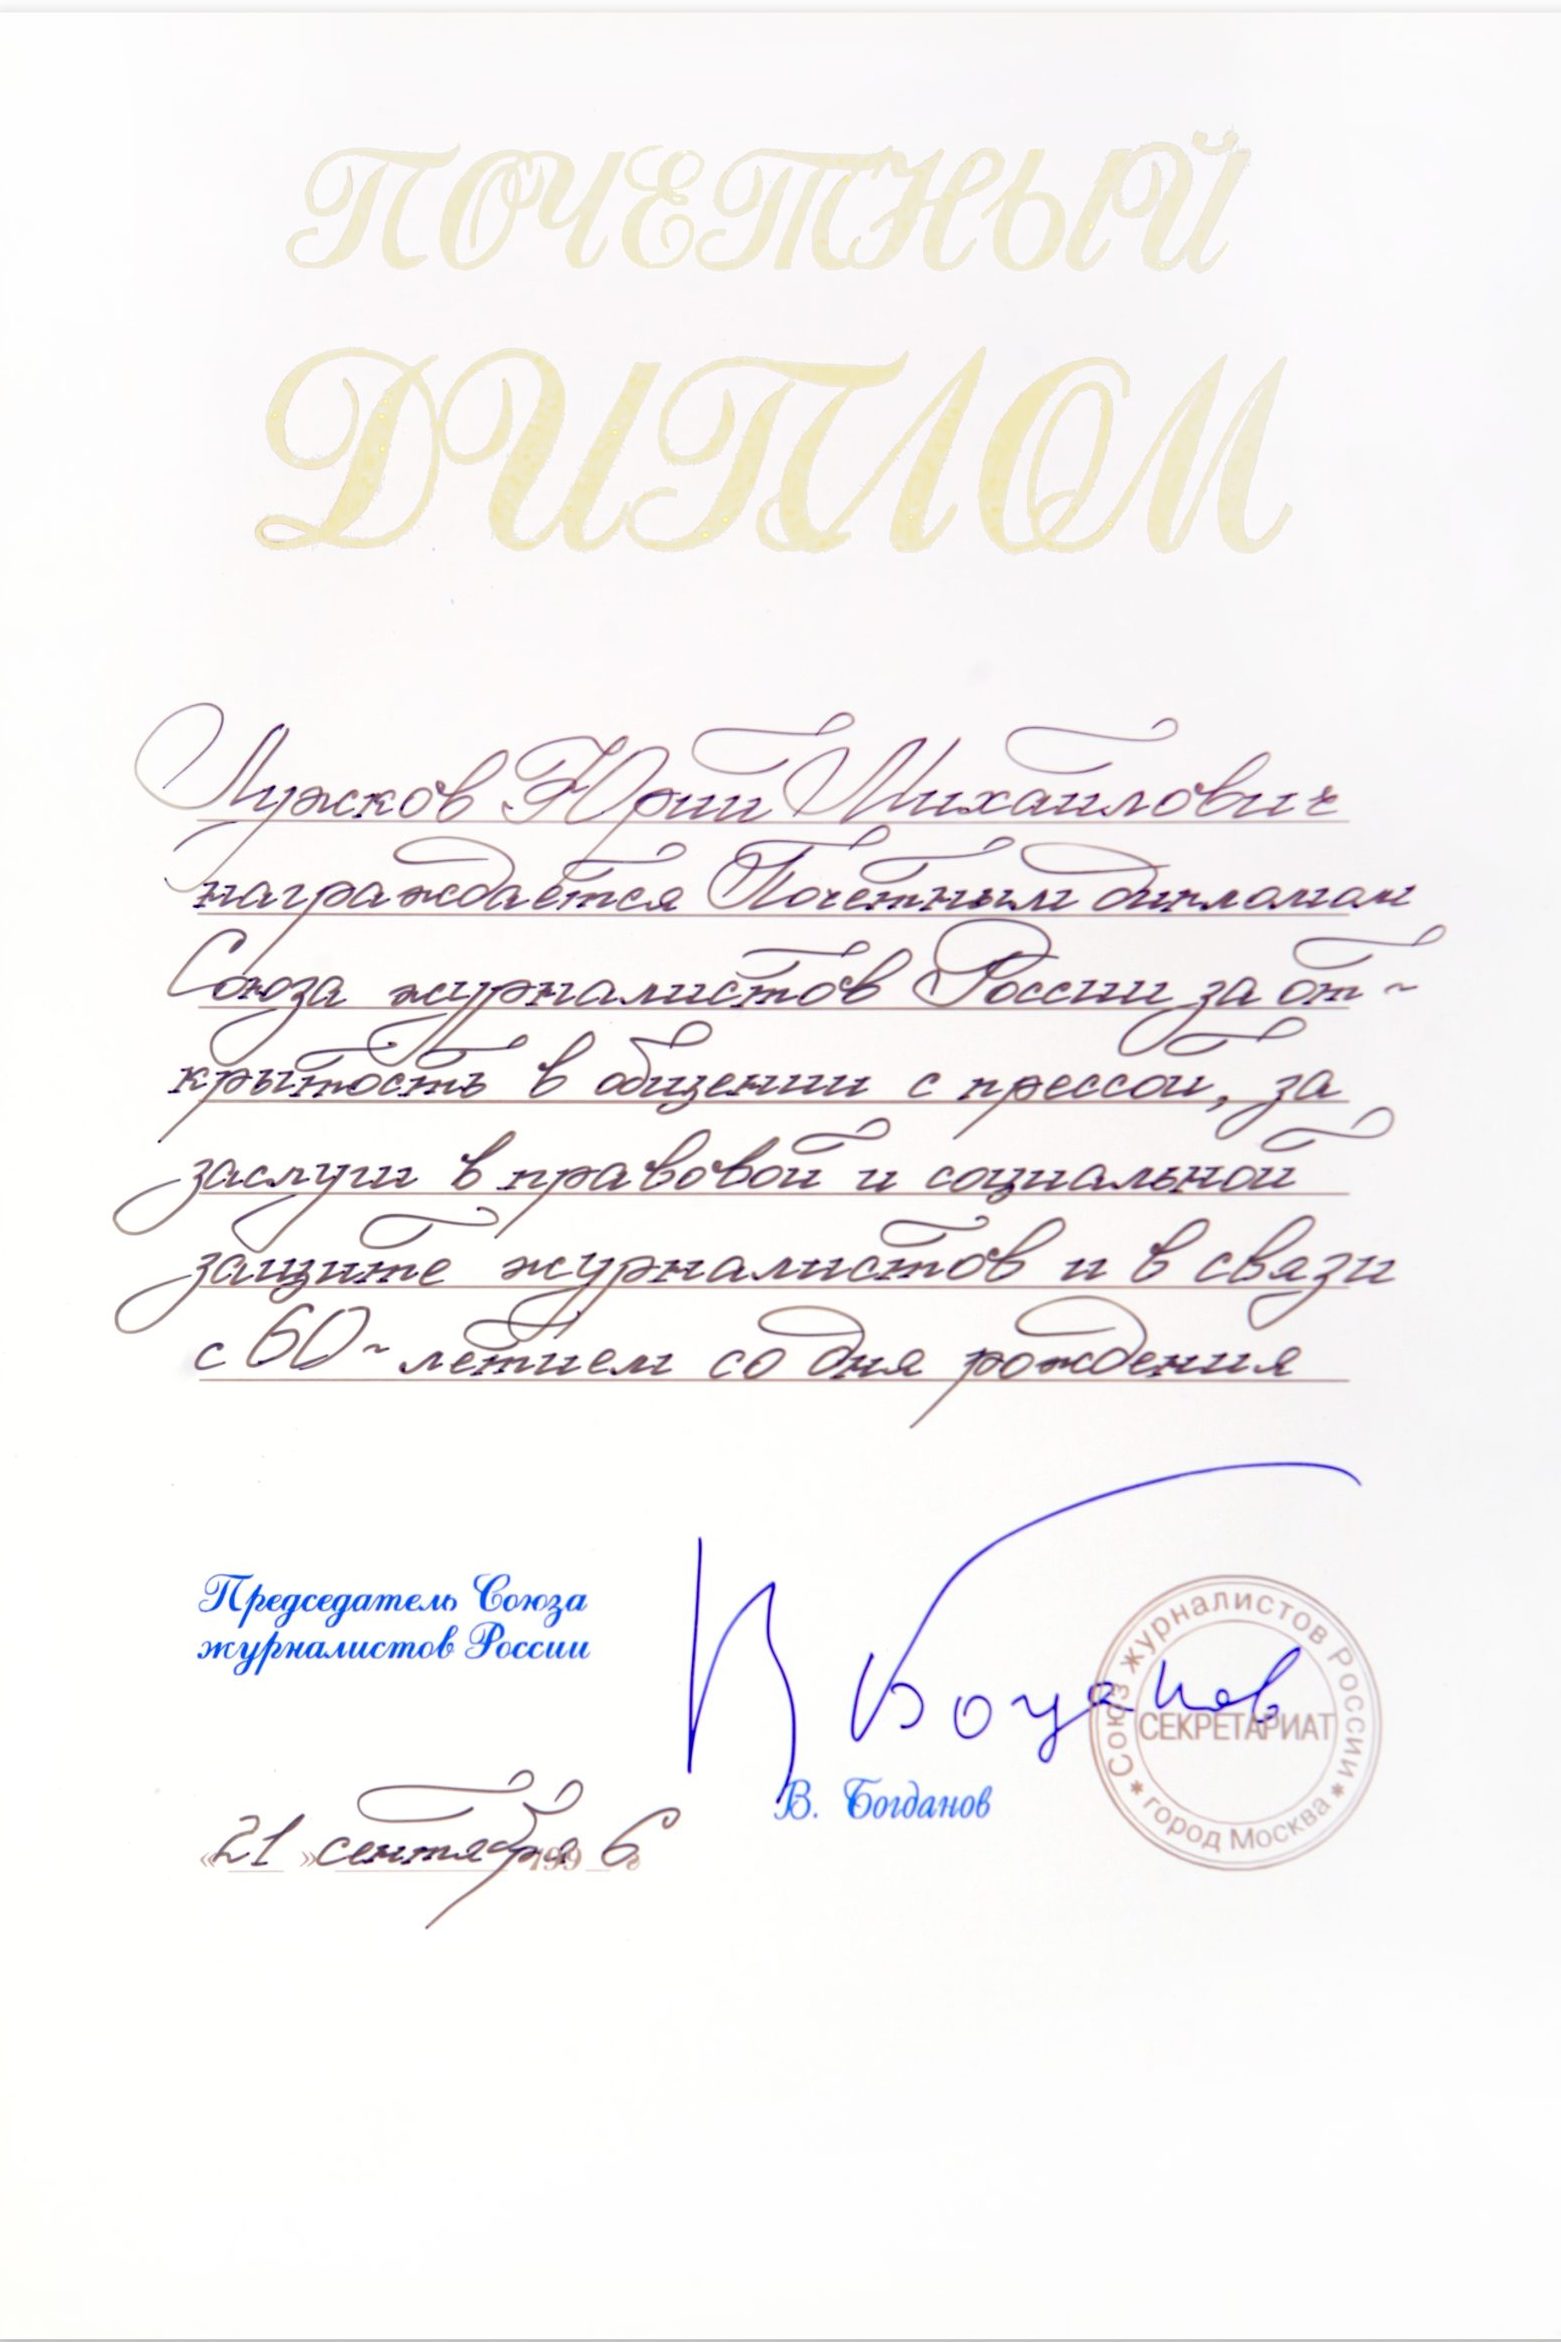 ПОЧЕТНЫЙ
ДИПЛОМ
Лужков Юрий Михайлович
награждается Почетным дипломом
Союза журналистов России за от-
крытость в общении с прессой, за
заслуги в правовой и социальной
защите журналистов и в связи
с 60-летием со дня рождения
Председатель Союза
журналистов России
В Богданов
В. Богданов
Союз журналистов России
СЕКРЕТАРИАТ
* город Москва *
«21» сентября 1996 г.